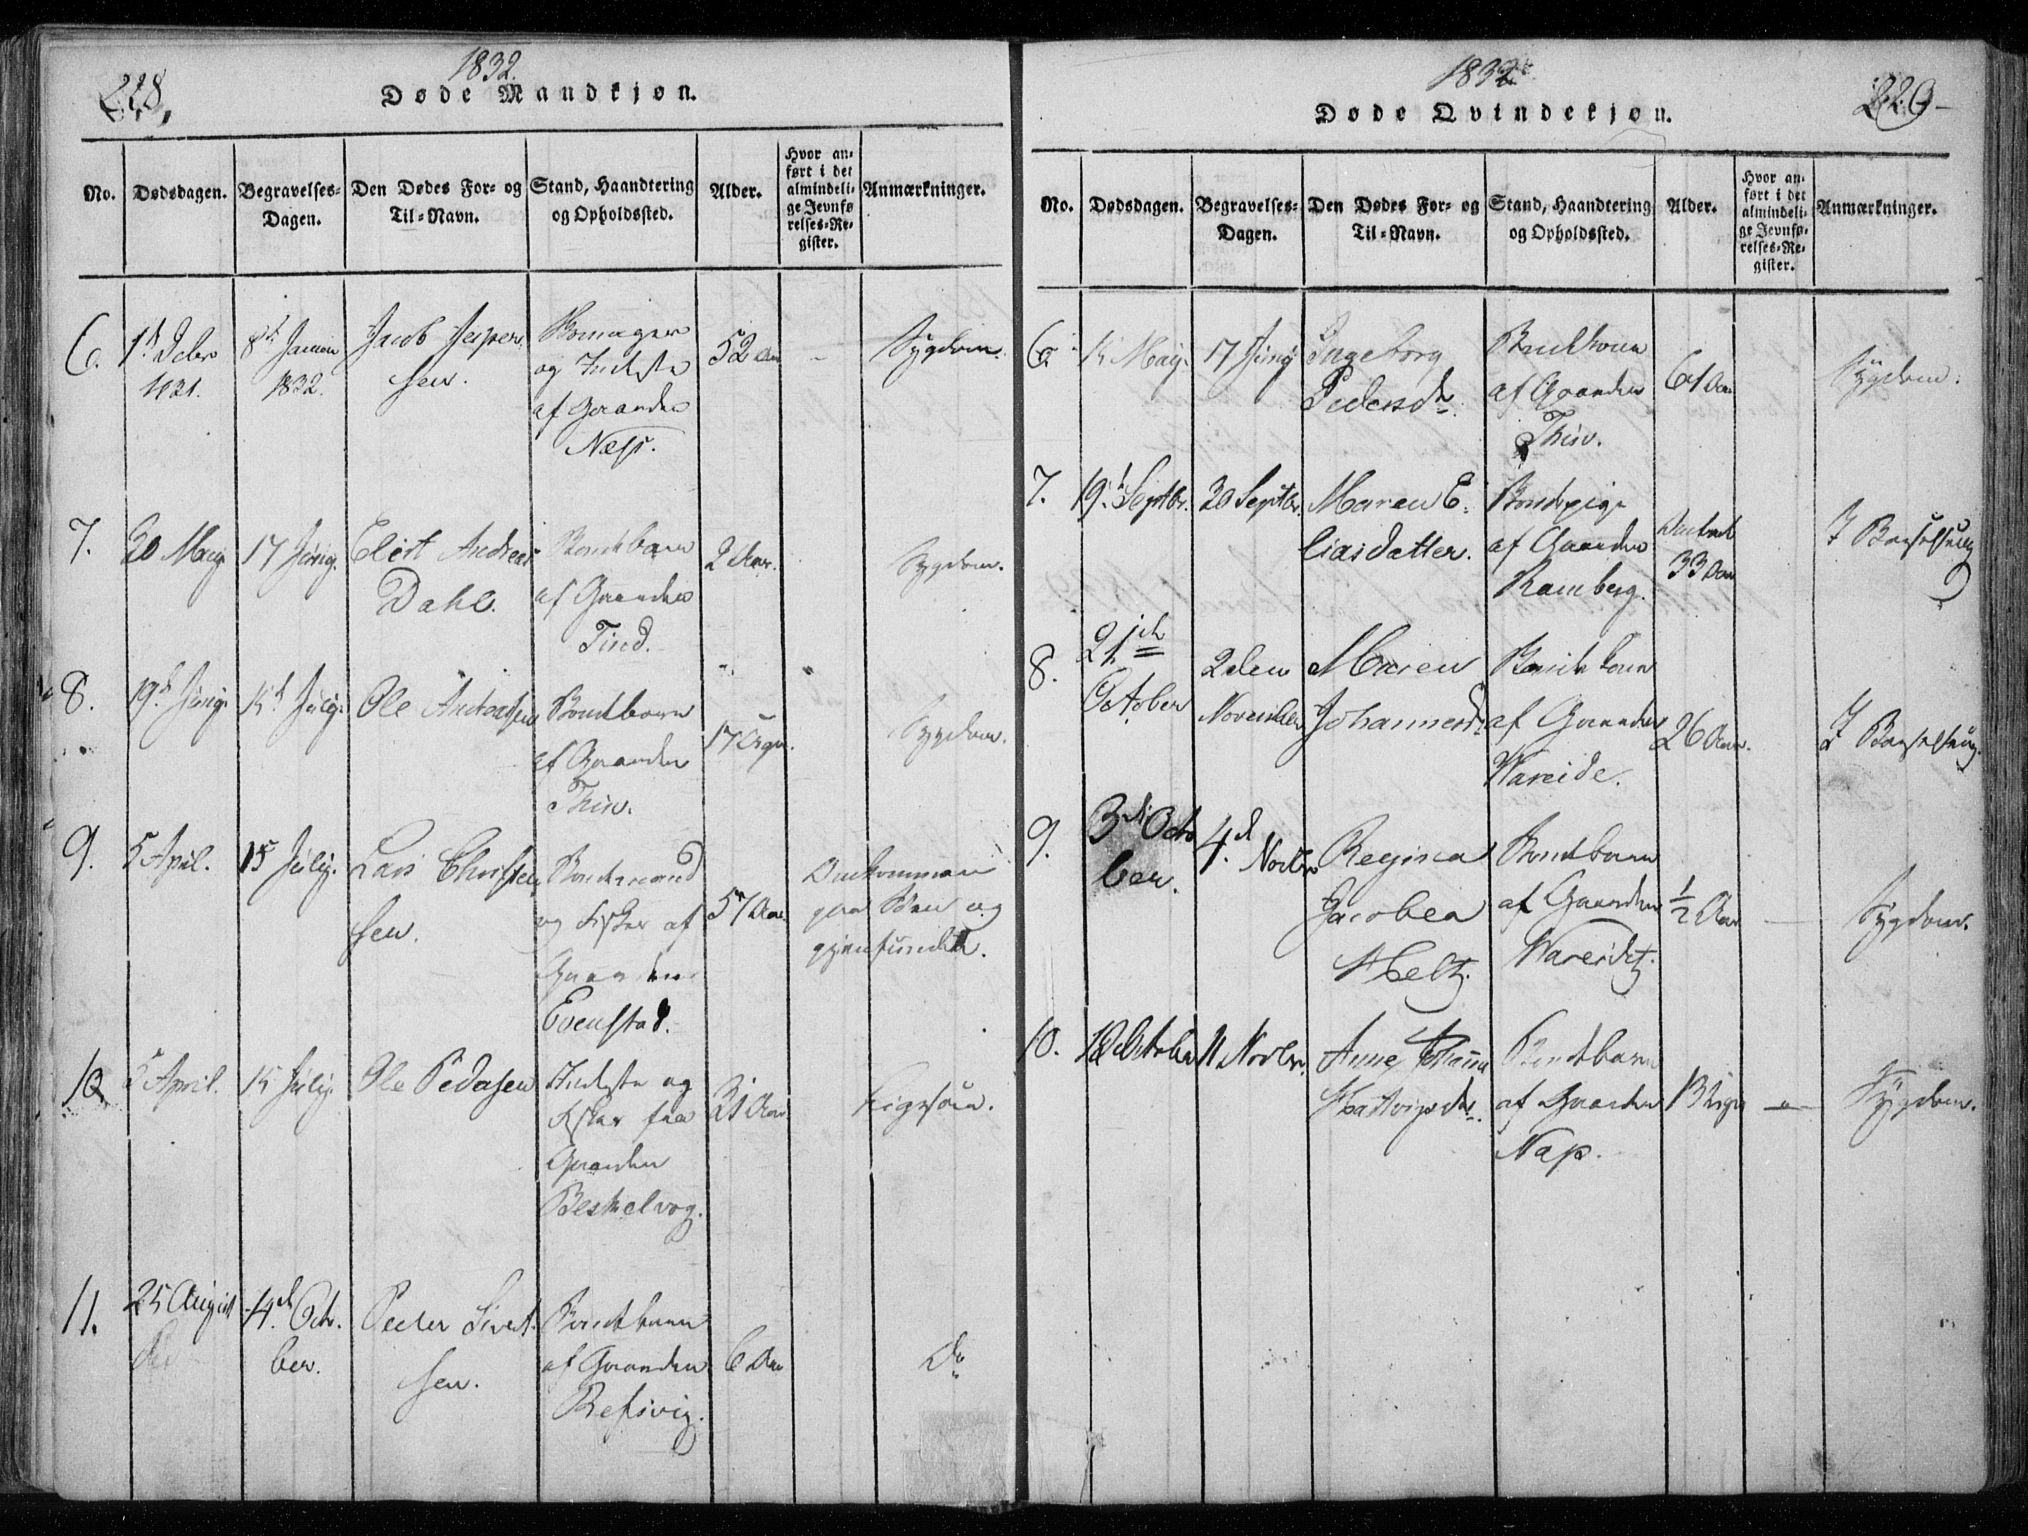 228.
1832.
Døde Mandkjøn.
No.
Dødsdagen.
Begravelses-
Dagen.
Den Dødes For- og
Til-Navn.
Stand, Haandtering
og Opholdssted.
Alder.
Hvor an-
ført i det
almindeli-
ge Jevnfø
relses-Re-
gister.
Anmærkninger.
6.
8de Januar
1832.
Jacob Jesper
sen.
og Inderste
af Gaarden
Næss.
52 Aar
-
Sygdom
7.
30 May
17 Juny.
Elert Andreas
Dahl.
Bondebarn
af Gaarden
Tind.
2 Aar.
Sygdom.
8.
19de Juny
15de July.
Ole Andersen
Bondebarn
af Gaarden
Thin.
17 Uger.
Sygdom.
9.
5 April.
15 July.
Lars Christen
sen.
Bondemand
og Fisker af
Gaarden
Evenstad.
57 Aar.
Omkommen
paa Søen og
gjenfunden.
10
5 April.
15 July.
Ole Pedersen
Inderste og
Fisker fra
Gaarden
Beskelvog.
31 Aar
Ligesaa.
11.
25 August
4de Octo-
ber.
Peder Sivert-
sen.
Bondebarn
af Gaarden
Refsvig.
6 Aar
Do
1832
229-
Døde Qvindekjøn.
No.
Dødsdagen.
Begravelses-
Dagen.
Den Dødes For- og
Til-Navn.
Stand, Haandtering
og Opholdssted.
Alder.
Hvor an-
ført i det
almindeli-
ge Jevnfø-
relses-Re-
gister.
Anmærkninger.
6.
15 May.
17 Juny
Ingeborg
Pedersdr.
af Gaarden
Thin.
61 Aar
Sygdom.
7.
19de Septbr.
30 Septbr.
Maren E-
liasdatter.
Bondepige
af Gaarden
Ramberg.
33 Aar
I Barselseng
8.
21de
October
2den
November
Maren
Johannesdr.
Bondekone
af Gaarden
Wareide.
26 Aar.
I Barselseng.
9.
3de Octo
ber.
4de Novbr
Regina
Jacobea
Heltz.
Bondebarn
af Gaarden
Wareidet.
1/2 Aar
-
Sygdom.
10.
October
11 Novbr.
Anne Johanna
Hartvigsdr.
Bondebarn
af Gaarden
Nap.
13 Uger
-
Sygdom.